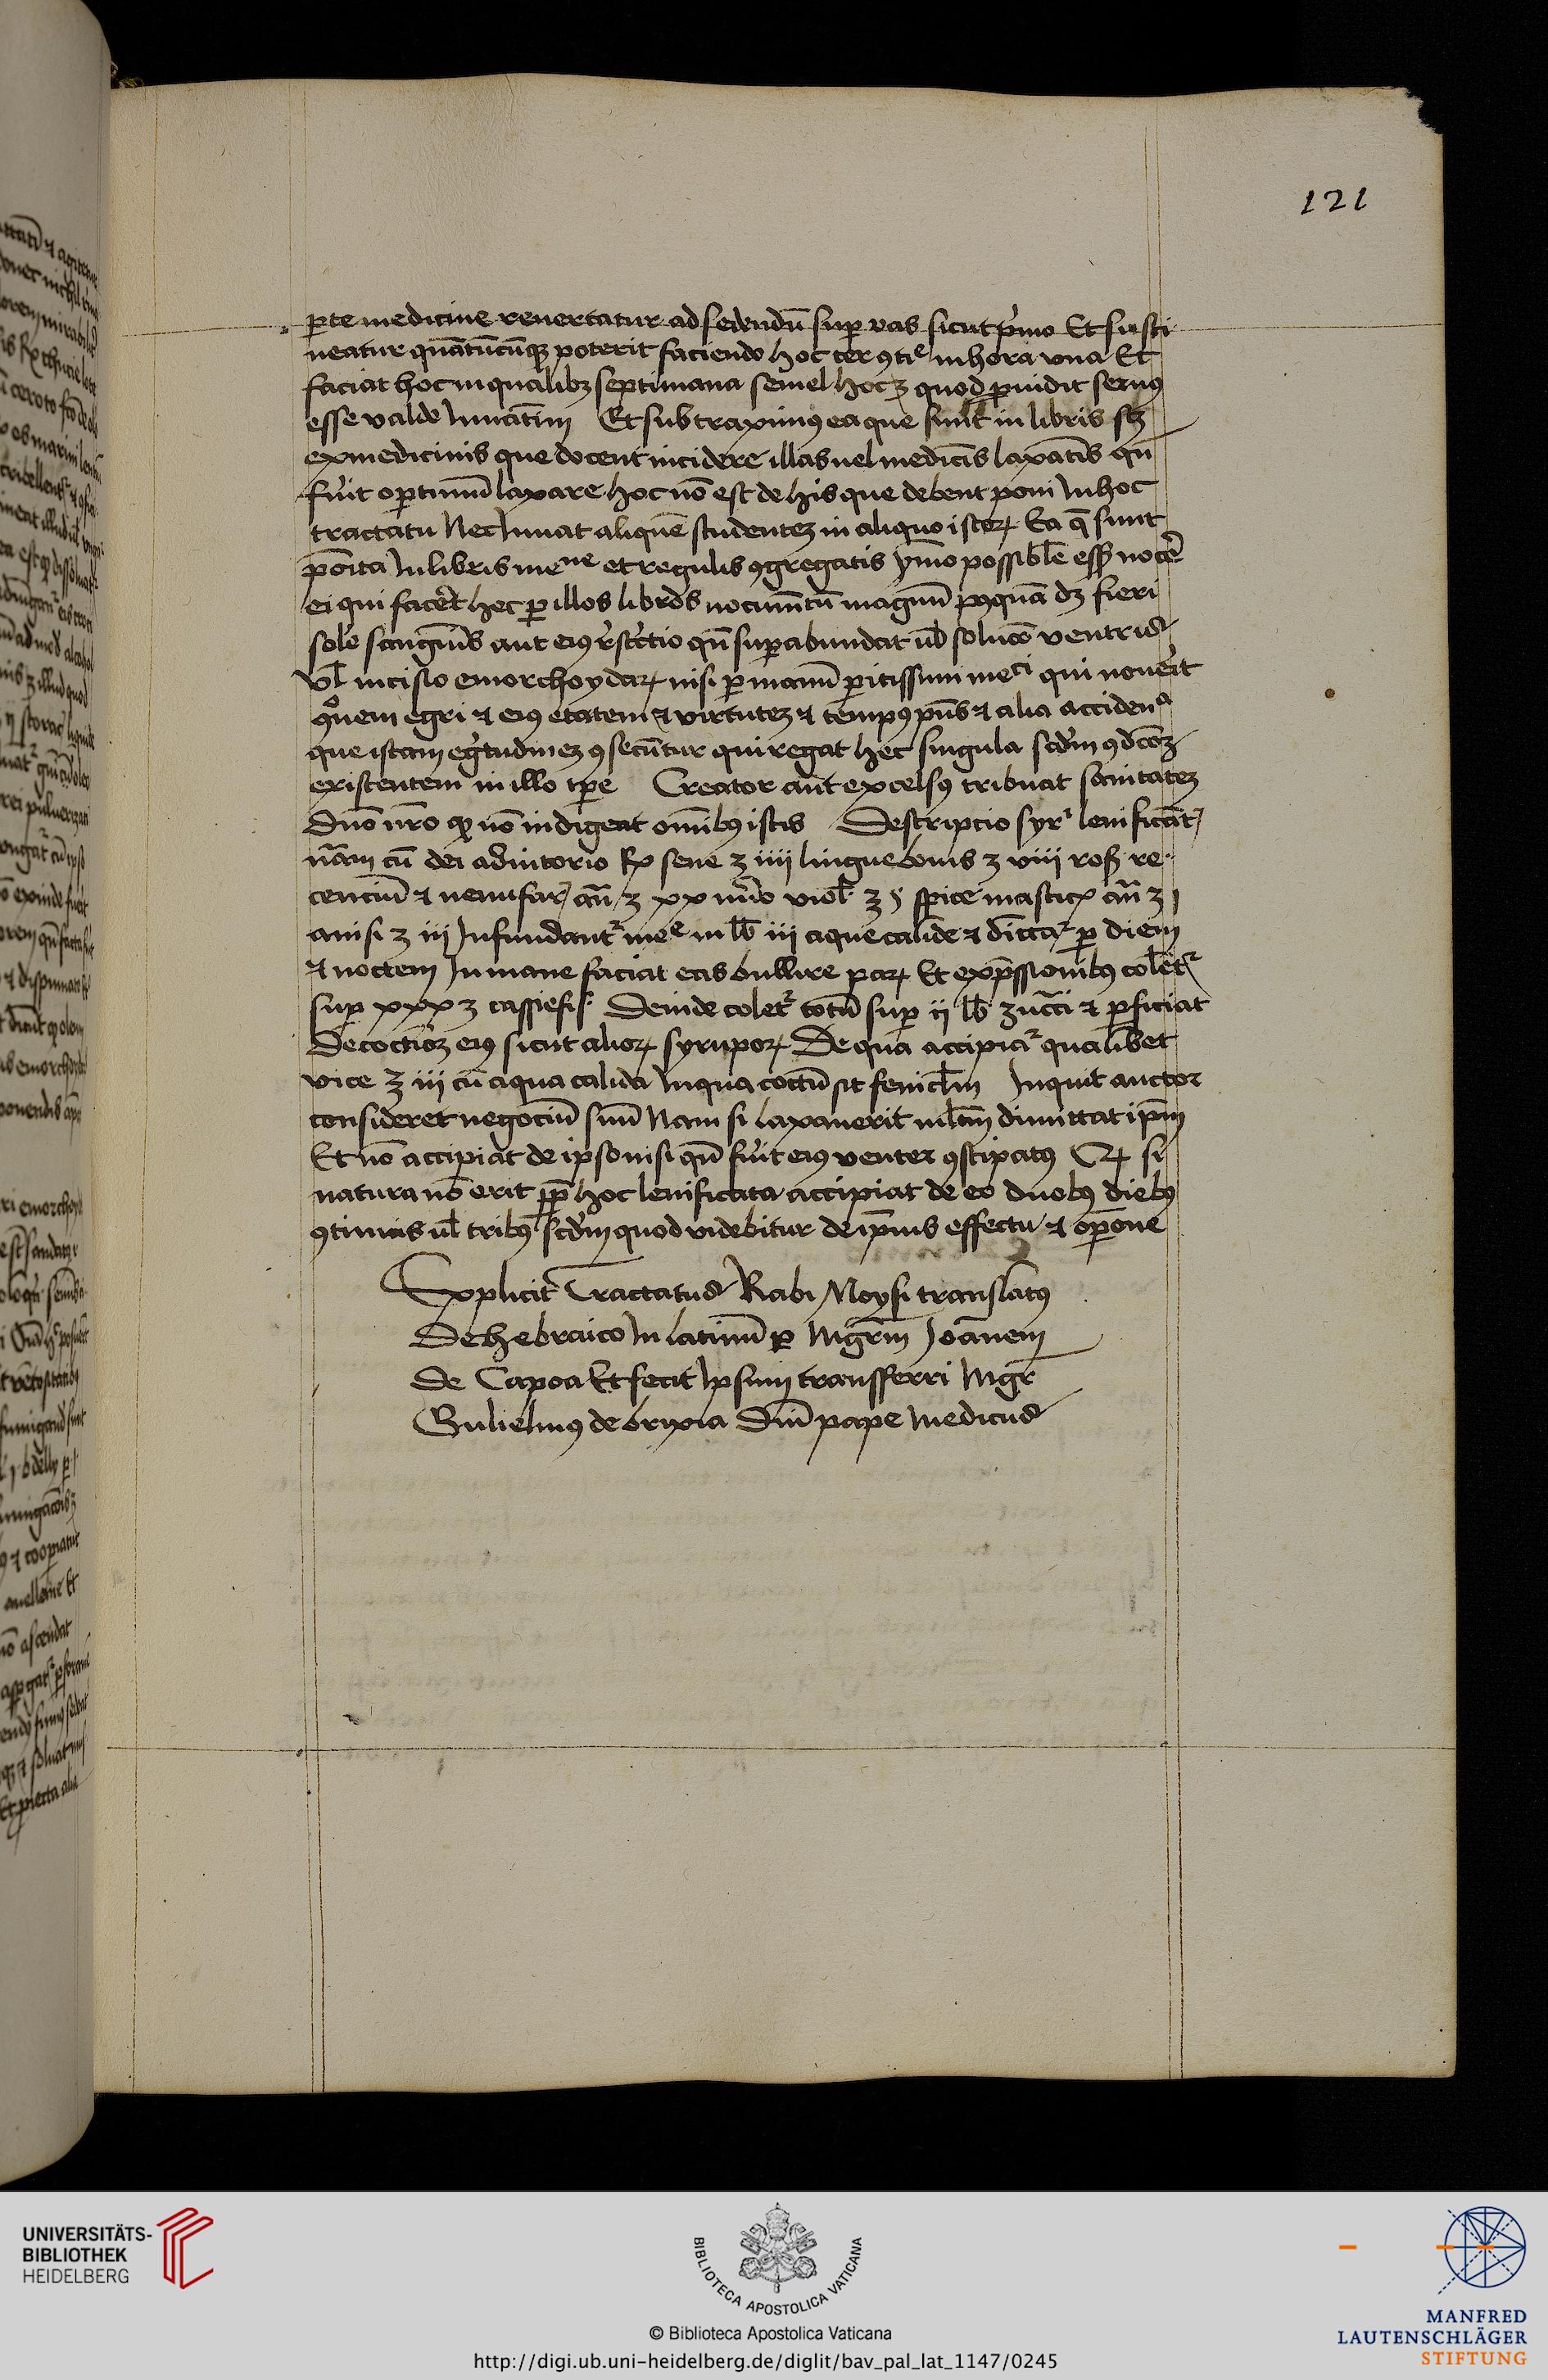 121
ꝑte medicine reuertatur ad sedendū suꝑ vas sicut pͥmo Et susti
neatur quātūcūqꝫ poterit faciendo hoc ter ꝯtiᵉ in hora vna Et
faciat hoc in qualibꝫ septimana semel hoc ꝫ quod ꝓuidit seruꝯ
esse valde Et subtraximꝯ ea que sunt in libris sꝫ
ex medicinis que docent incidere illas uel medicīs laxatīs qn̄
fuit optimū laxare hoc nō est de his que debent poni In hoc
tractatu Nec Iuuat aliquē studentēꝫ in aliquo istoꝝ Ea q̄ sunt
pōita In libris meⁿᵉ et regulis ꝯgregatis ymo possibl̄e esset nocē
ei qui facēt hec ꝑ illos libros nocumtū magnū pꝯquā dꝫ fieri
sole sanguīs aut eiꝯ qn̄ suꝑabundat ul̄ soluco ventris
vl̄ incisio emorchoydaꝝ nisi ꝑ manū ꝑitissimi meᶜⁱ qui nouerit
egri ⁊ eiꝯ etatem ⁊ virtutēꝫ ⁊ tempꝯ pn̄s ⁊ alia accidenᵃ
que istam egͥtudinēꝫ ꝯsecūtur qui regat hec singula scd̄m ꝯdcōꝫ
existentem in illo tp̄e Creator aut excelsꝯ tribuat sanitatēꝫ
dn̄o nr̄o ꝙ nō indigeat omnibꝯ istis Descriptio syrͥ lenificāt
nām cū dei adiutorio Rx sene ʒ iiii lingue bouis ʒ viii ros re
cenciū ⁊ nenufar an̄ ʒ xx viol spice masticꝭ an̄ ʒ i
anisi ʒ iii Infundant᷑ meᵉ in lb iii aque calide ⁊ ꝑ diem
⁊ noctem In mane faciat eas bullire paꝝ Et exp̄ssionibꝯ colet᷑
sup xxx ʒ cassiefis Deinde colet᷑ totū suꝑ ii lb zucci ⁊ ꝑficiat
decoctiōꝫ eiꝯ sicut alioꝝ syrupoꝝ De qua accipia᷑ qualibet
vice ʒ iii cū aqua calida In qua coctū sit fenicl̄m Inquit auctor
consideret negociū suū Nam si laxauerit ml̄tm̄ dimittat ip̄m
Et nō accipiat de ipso nisi qn̄ fuit eiꝯ venter ꝯstipatꝯ si
natura nō erit ꝓp̄ hoc lenificata accipiat de eo duobꝯ diebꝯ
ꝯtinuis ul̄ tribꝯ scd̄m quod videbitur de ip̄ius effectu ⁊ opone
Explicit Tractatus Rabi Moysi translatꝯ
De hebraico In latinū ꝑ Mgr̄m Joānem
de Capoa Et fecit Ipsum transferri Mgr̄
Gulielmꝯ de brixia Dn̄i pape Medicus
UNIVERSITÄTS-
BIBLIOTHEK
HEIDELBERG
BIBLIOTECA APOSTOLICA VATICANA
© Biblioteca Apostolica Vaticana
http://digi.ub.uni-heidelberg.de/diglit/bav_pal_lat_1147/0245
MANFRED
LAUTENSCHLÄGER
STIFTUNG